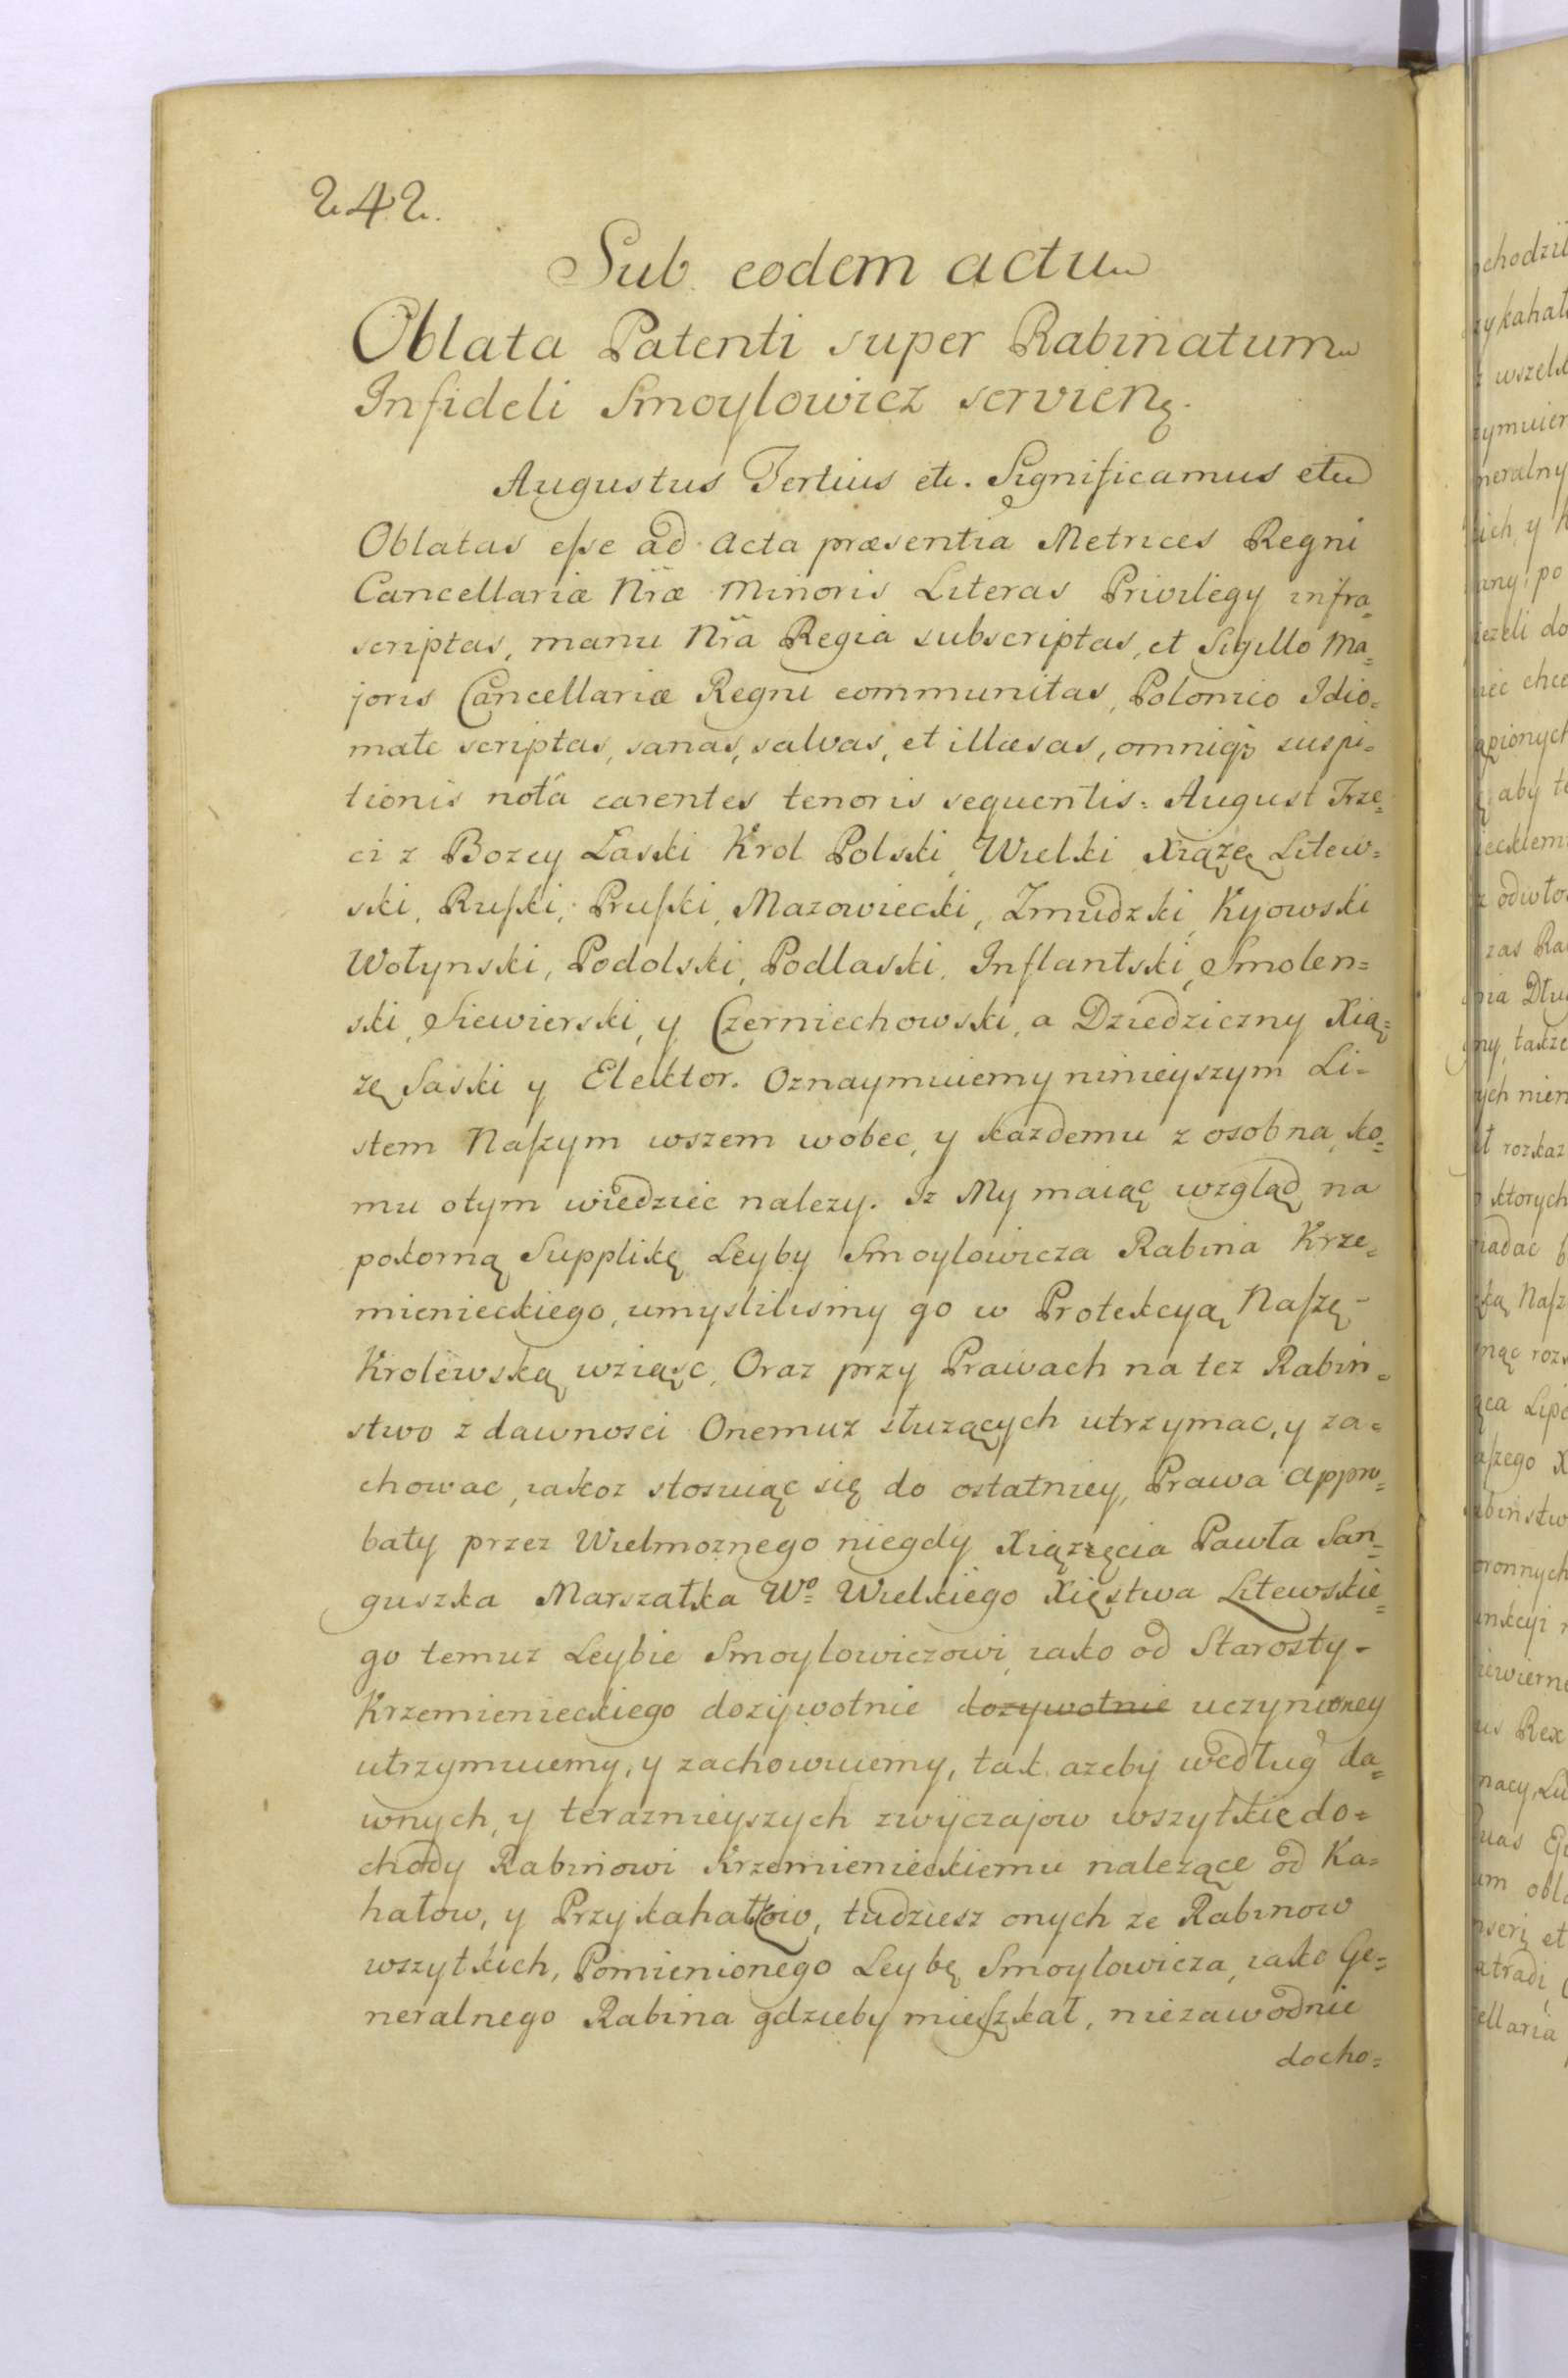 242.
Sub eodem actu
Oblata Patenti super Rabinatum
Infideli Smoylowicz servien.
Augustus Tertius etc. Significamus etc
Oblatas eſse ad Acta præsentia Metrices Regni
Cancellariæ Nræ Minoris Literas Privilegy infra=
scriptas, manu Nra Regia subscriptas, et Sigillo Ma=
joris Cancellariæ Regni communitas, Polonico Idio=
mate scriptas, sanas, salvas, et illæsas, omniq3 suspi=
tionis nota carentes tenoris sequentis: August Trze=
ci z Bozey Łaski Krol Polski, Wielki Xiąże Litew=
ski, Ruſki, Pruſki, Mazowiecki, Zmudzki, Kyowski
Wołynski, Podolski, Podlaski, Inflantski, Smolen=
ski, Siewierski, y Czerniechowski, a Dziedziczny Xią=
zę Saski y Elektor. Oznaymuiemy ninieyszym Li=
stem Naſzym wszem wobec, y kazdemu z osobna, ko=
mu otym wiedziec nalezy. Iz My maiąc wzgląd na
pokorną Supplikę Leyby Smoylowicza Rabina Krze=
mienieckiego, umyslilismy go w Protekcyą Naſzę
Krolewską wziąsc, Oraz przy Prawach na tez Rabin=
stwo z dawnosci Onemuz słuzących utrzymac, y za=
chowac, iakoz stosuiąc się do ostatniey, Prawa appro=
baty przez Wielmoznego niegdy Xiązęcia Pawła San=
guszka Marszałka Wo Wielkiego Xięstwa Litewskie=
go temuz Leybie Smoylowiczowi, iako od Starosty
Krzemienieckiego dozywotnie dozywotnie uczynioney
utrzymuiemy, y zachowuiemy, tak azeby według da=
wnych, y teraznieyszych zwyczajow wszytkie do=
chody Rabinowi Krzemienieckiemu nalezące od Ka=
hałow, y Przykahałkow, tudziesz onych ze Rabinow
wszytkich, Pomienionego Leybę Smoylowicza, iako Ge=
neralnego Rabina gdzieby mieſzkał, niezawodnie
docho=